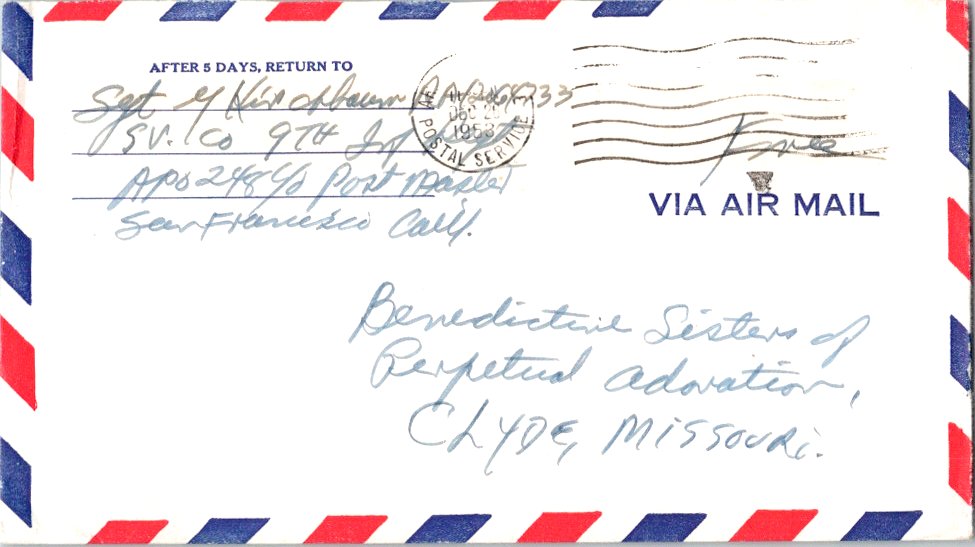 AFTER 5 DAYS, RETURN TO
Sgt
SV. Co 9TH Inf
APO 248 c/o Post Master
San Francisco Calif.
DEC
1953
POSTAL SERVICE
Free
VIA AIR MAIL
Benedictine Sisters of
Perpetual Adoration,
CLYDE, MISSOURi.